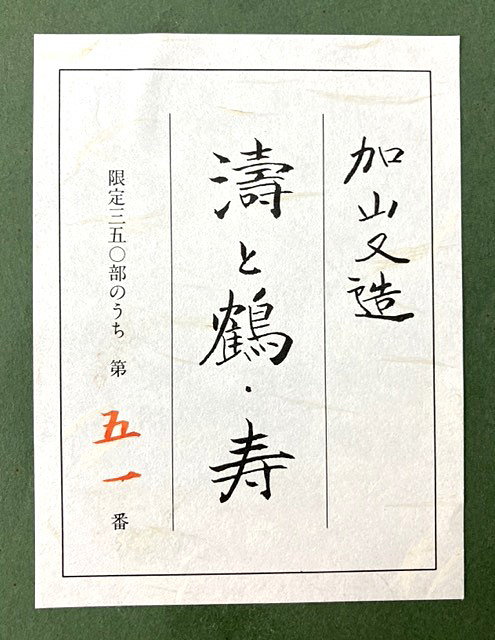 加山又造
濤と鶴・寿
限定三五〇部のうち 第 五一 番